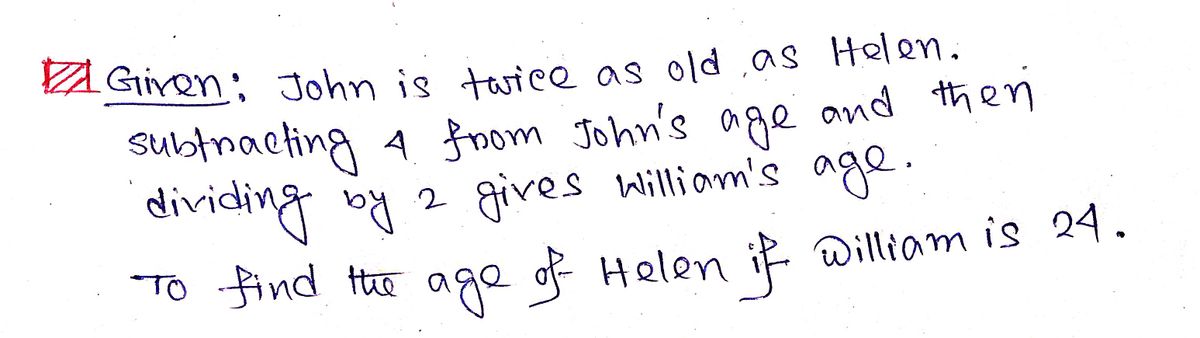 Given: John is twice as old as Helen.
subtracting 4 from John's age and then
dividing by 2 gives William's age.
To find the age of Helen if William is 24.